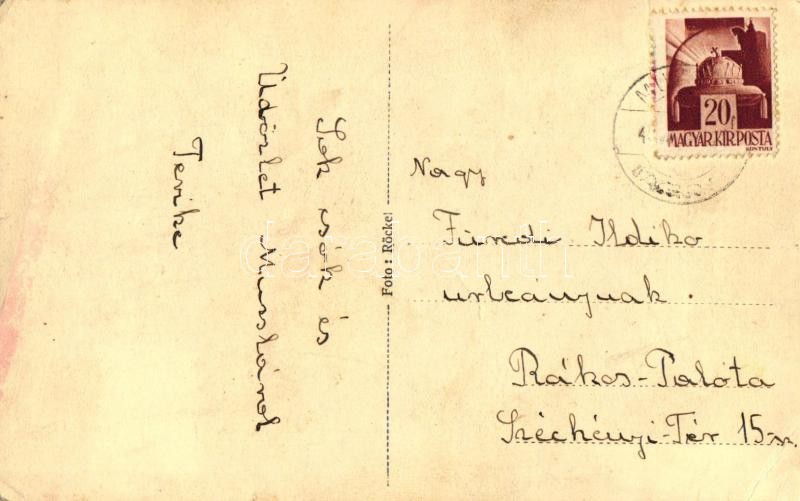 Sok csók és
Üdözlet Munkáról
Terike
Foto: Röckel
Nagy
Füredi Ildiko
urleánynak.
Rákos-Palota
Széchényi-Tér 15-sz.
20f
MAGYAR KIR. POSTA
darabanth